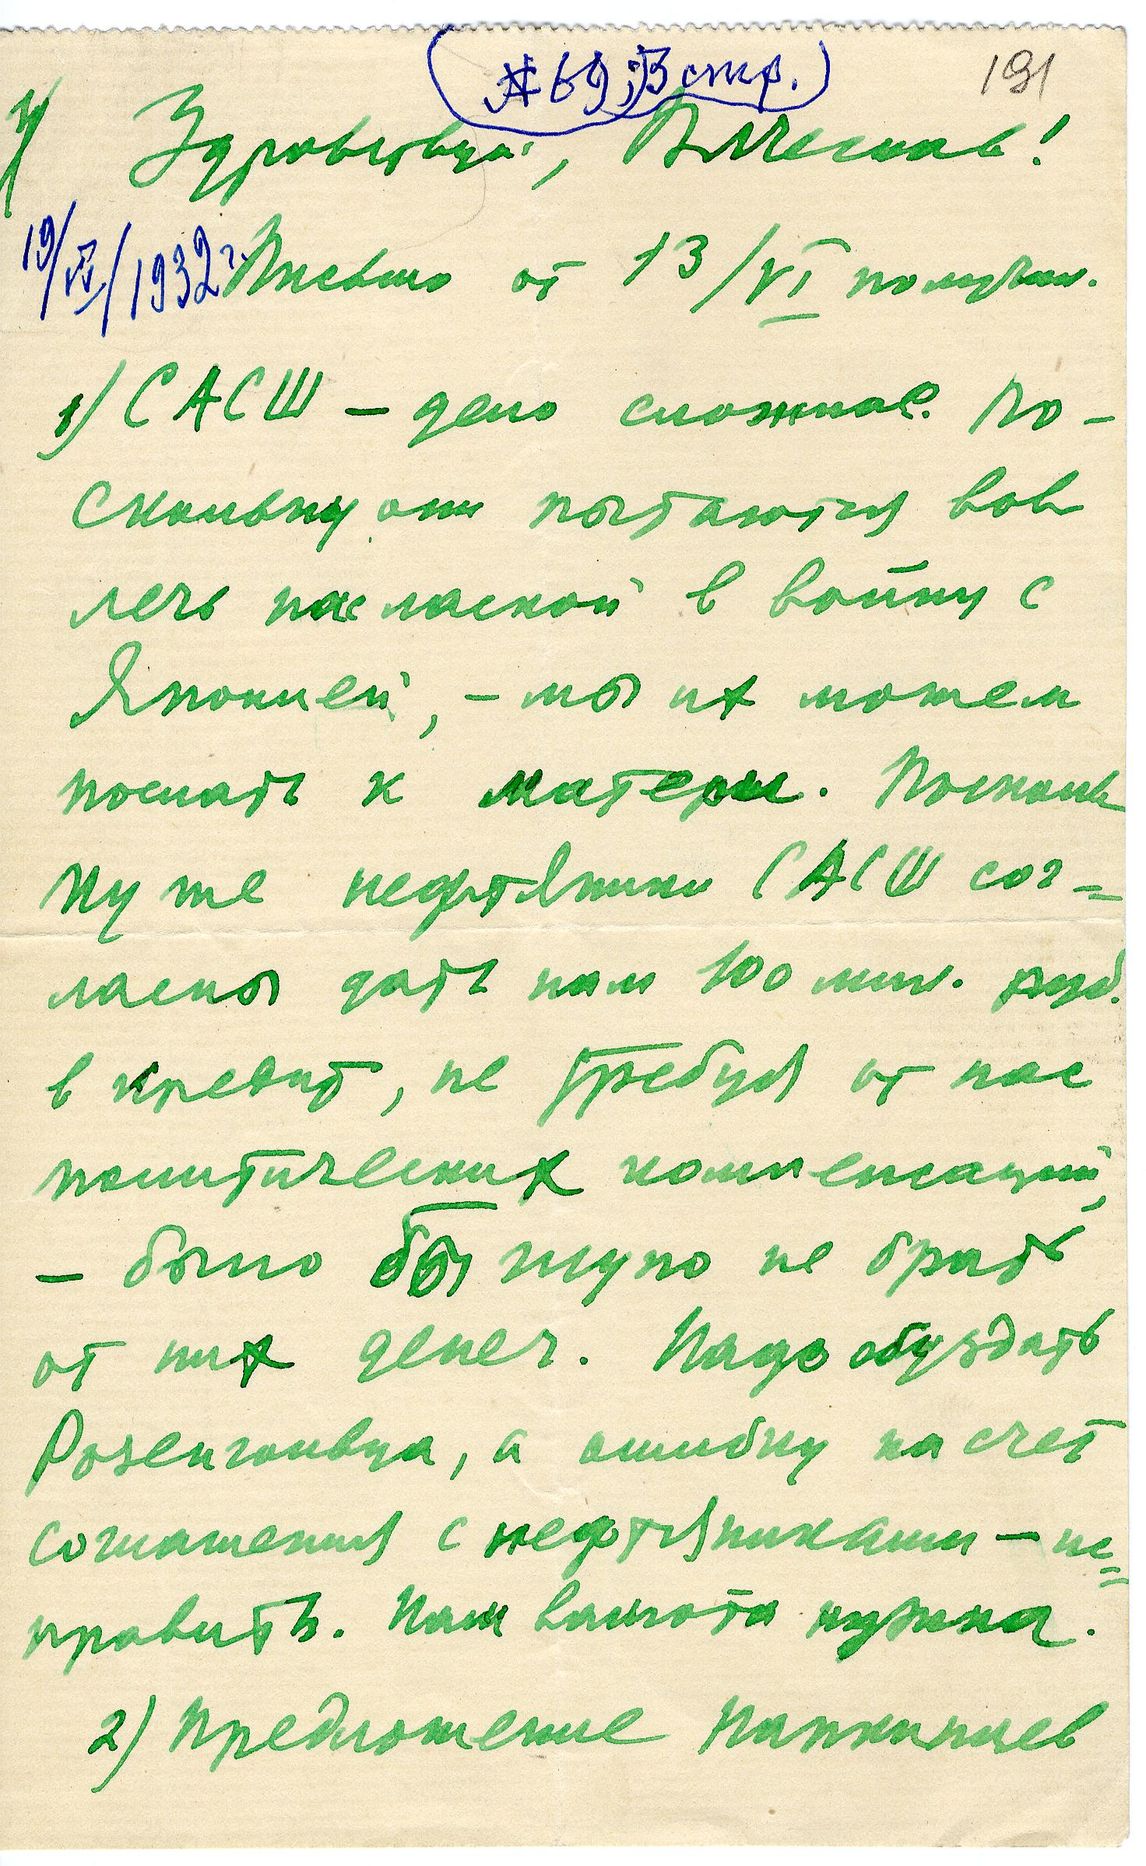 № 69; 3 стр.
191
1/ Здравствуй, Вячеслав!
19/IV/1932 г.
Письмо от 13/VI получил.
1) САСШ – дело сложное. По-
скольку они пытаются вов
лечь нас лаской в войну с
Японией, – мы их можем
послать к матери. Посколь
ку же нефтяники САСШ сог=
ласны дать нам 100 мил. руб.
в кредит, не требуя от нас
политических компенсаций,
– было бы глупо не брать
от них денег. Надо обуздать
Розенгольца, а ошибку насчет
соглашения с нефтяниками – ис=
править. Нам валюта нужна.
2) Предложение Нанкинцев